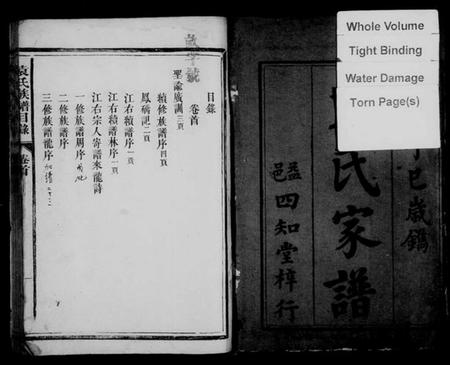 Whole Volume
Tight Binding
Water Damage
Torn Page(s)
巳歲鐫
氏家譜
益邑
四知堂梓行
目錄
卷首
聖諭廣訓三頁
續修族譜序四頁
鳳硚記二頁
江右續譜序一頁
江右續譜林序一頁
江右宗人寄譜來龍詩
一修族譜周序
二修族譜序
三修族譜龍序
袁氏族譜目錄
卷首